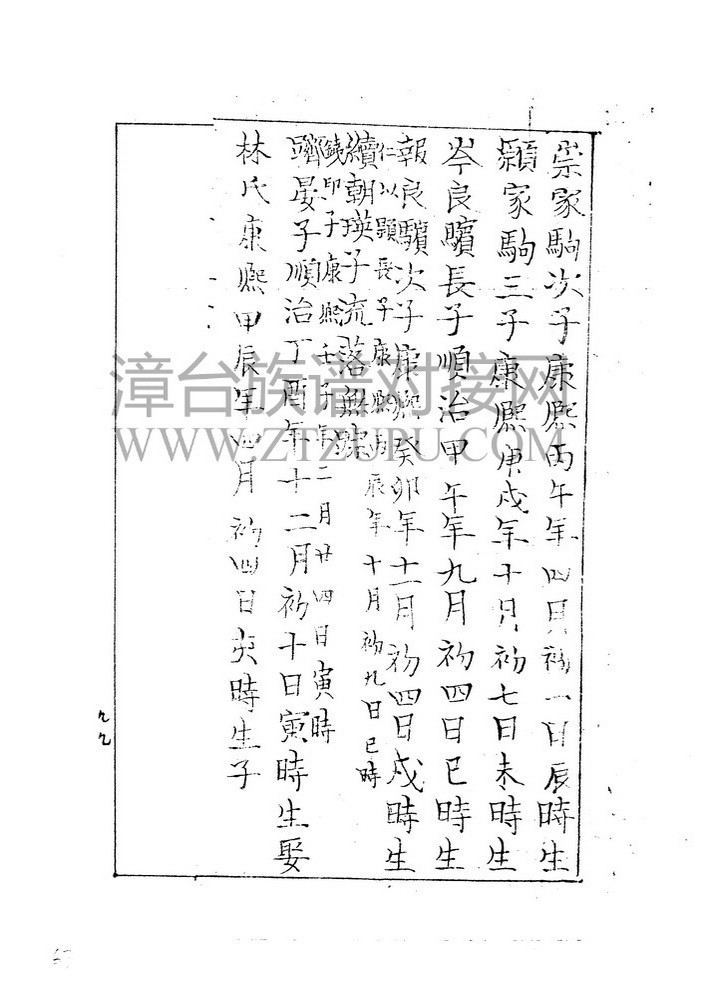 崇家駒次子康熙丙午年四月初一日辰時生
頴家駒三子康熙庚戌年十月初七日未時生
岑良驥長子順治甲午年九月初四日巳時生
報良驥次子康熙癸卯年十二月初四日戌時生
仁以顕長子康熙丙辰年十月初九日巳時
續朝瑛子流落無踪
鉄印子康熙壬子年二月廿四日寅時
晏子順治丁酉年十二月初十日寅時生娶
林氏康熙甲辰年四月初四日亥時生子
九九
漳台族谱对接网
WWW.ZTZUPU.COM